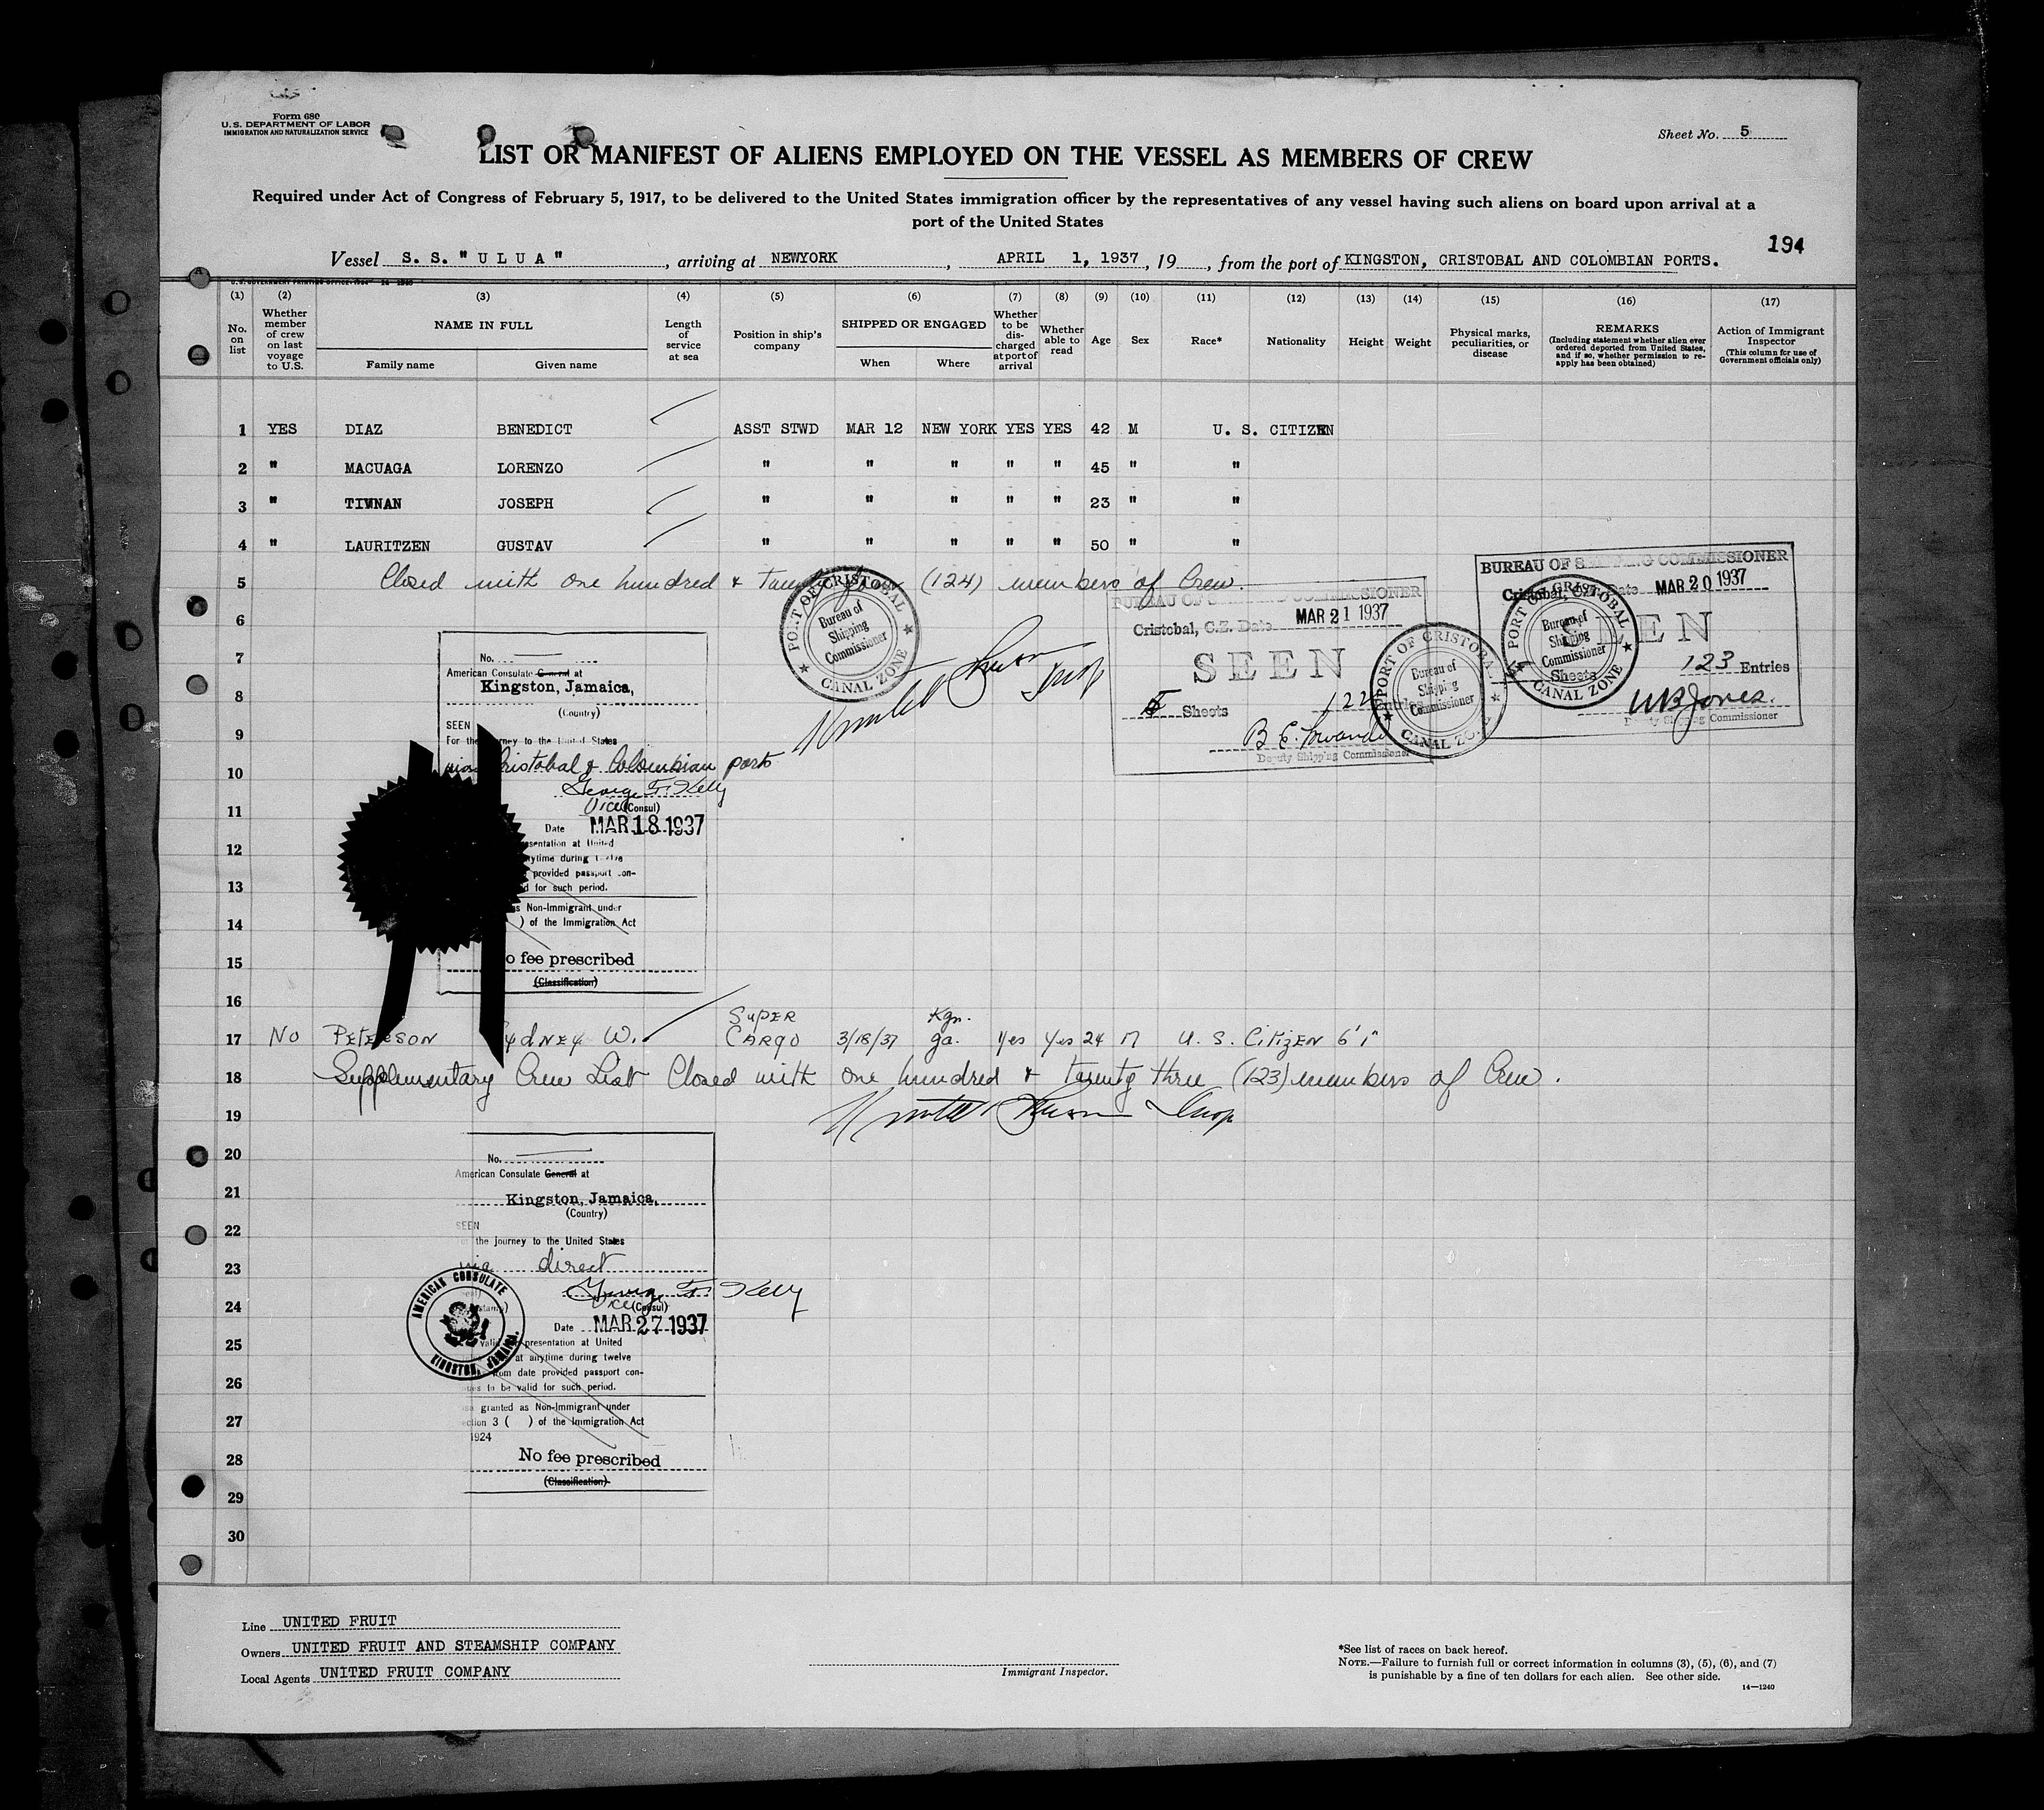 Form 680
U.S. DEPARTMENT OF LABOR
IMMIGRATION AND NATURALIZATION SERVICE
Sheet No. 5
LIST OR MANIFEST OF ALIENS EMPLOYED ON THE VESSEL AS MEMBERS OF CREW
Required under Act of Congress of February 5, 1917, to be delivered to the United States immigration officer by the representatives of any vessel having such aliens on board upon arrival at a
port of the United States
194
Vessel S. S. "ULUA", arriving at NEWYORK, APRIL 1, 1937, 19, from the port of KINGSTON, CRISTOBAL AND COLOMBIAN PORTS.
(1) (2) (3) (4) (5) (6) (7) (8) (9) (10) (11) (12) (13) (14) (15) (16) (17)
No. on list
Whether member of crew on last voyage to U.S.
NAME IN FULL
Family name
Given name
Length of service at sea
Position in ship's company
SHIPPED OR ENGAGED
When
Where
Whether to be discharged at port of arrival
Whether able to read
Age
Sex
Race*
Nationality
Height
Weight
Physical marks, peculiarities, or disease
REMARKS
(Including statement whether alien ever ordered deported from United States, and if so, whether permission to re-apply has been obtained)
Action of Immigrant Inspector
(This column for use of Government officials only)
1 YES DIAZ BENEDICT ASST STWD MAR 12 NEW YORK YES YES 42 M U. S. CITIZEN
2 " MACUAGA LORENZO " " " " " 45 " "
3 " TIVNAN JOSEPH " " " " " 23 " "
4 " LAURITZEN GUSTAV " " " " " 50 " "
5 Closed with one hundred & (124) members of Crew.
6
7
8
9
10
11
12
13
14
15
16
PORT OF CRISTOBAL
Bureau of Shipping Commissioner
CANAL ZONE
BUREAU OF SHIPPING COMMISSIONER
Cristobal, C.Z. Date MAR 21 1937
SEEN
Sheets
Deputy Shipping Commissioner
PORT OF CRISTOBAL
Bureau of Shipping Commissioner
CANAL ZONE
BUREAU OF SHIPPING COMMISSIONER
Cristobal, C.Z. Date MAR 20 1937
SEEN
Sheets 123 Entries
WB Jones.
Deputy Shipping Commissioner
PORT OF CRISTOBAL
Bureau of Shipping Commissioner
CANAL ZONE
No.
American Consulate General at
Kingston, Jamaica,
(Country)
SEEN
For the journey to the United States
via Cristobal & Colombian ports
George F. Kelly
Vice (Consul)
Date MAR 18 1937
presentation at United
anytime during twelve
provided passport con-
d for such period.
as Non-Immigrant under
) of the Immigration Act
No fee prescribed
(Classification)
17 No PETERSON SYDNEY W. SUPER CARGO 3/18/37 Kgn. Ja. Yes Yes 24 M U. S. CITIZEN 6'1"
18 Supplementary Crew List Closed with one hundred & twenty three (123) members of Crew.
19
20
21
22
23
24
25
26
27
28
29
30
No.
American Consulate General at
Kingston, Jamaica,
(Country)
SEEN
the journey to the United States
via direct
George F. Kelly
Vice (Consul)
Date MAR 27 1937
valid presentation at United
at anytime during twelve
from date provided passport con-
ues to be valid for such period.
granted as Non-Immigrant under
ction 3 ( ) of the Immigration Act
1924
No fee prescribed
(Classification)
AMERICAN CONSULATE
KINGSTON, JAMAICA.
Line UNITED FRUIT
Owners UNITED FRUIT AND STEAMSHIP COMPANY
Local Agents UNITED FRUIT COMPANY
Immigrant Inspector.
*See list of races on back hereof.
NOTE.—Failure to furnish full or correct information in columns (3), (5), (6), and (7)
is punishable by a fine of ten dollars for each alien. See other side.
14—1240